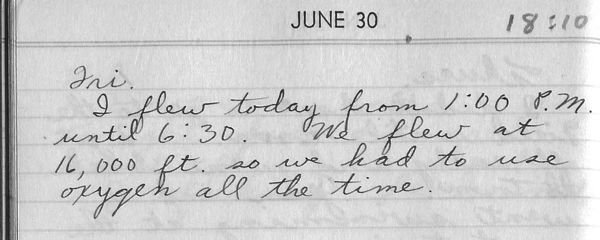 JUNE 30 18:10
Fri.
I flew today from 1:00 P.M.
until 6:30. We flew at
16,000 ft. so we had to use
oxygen all the time.